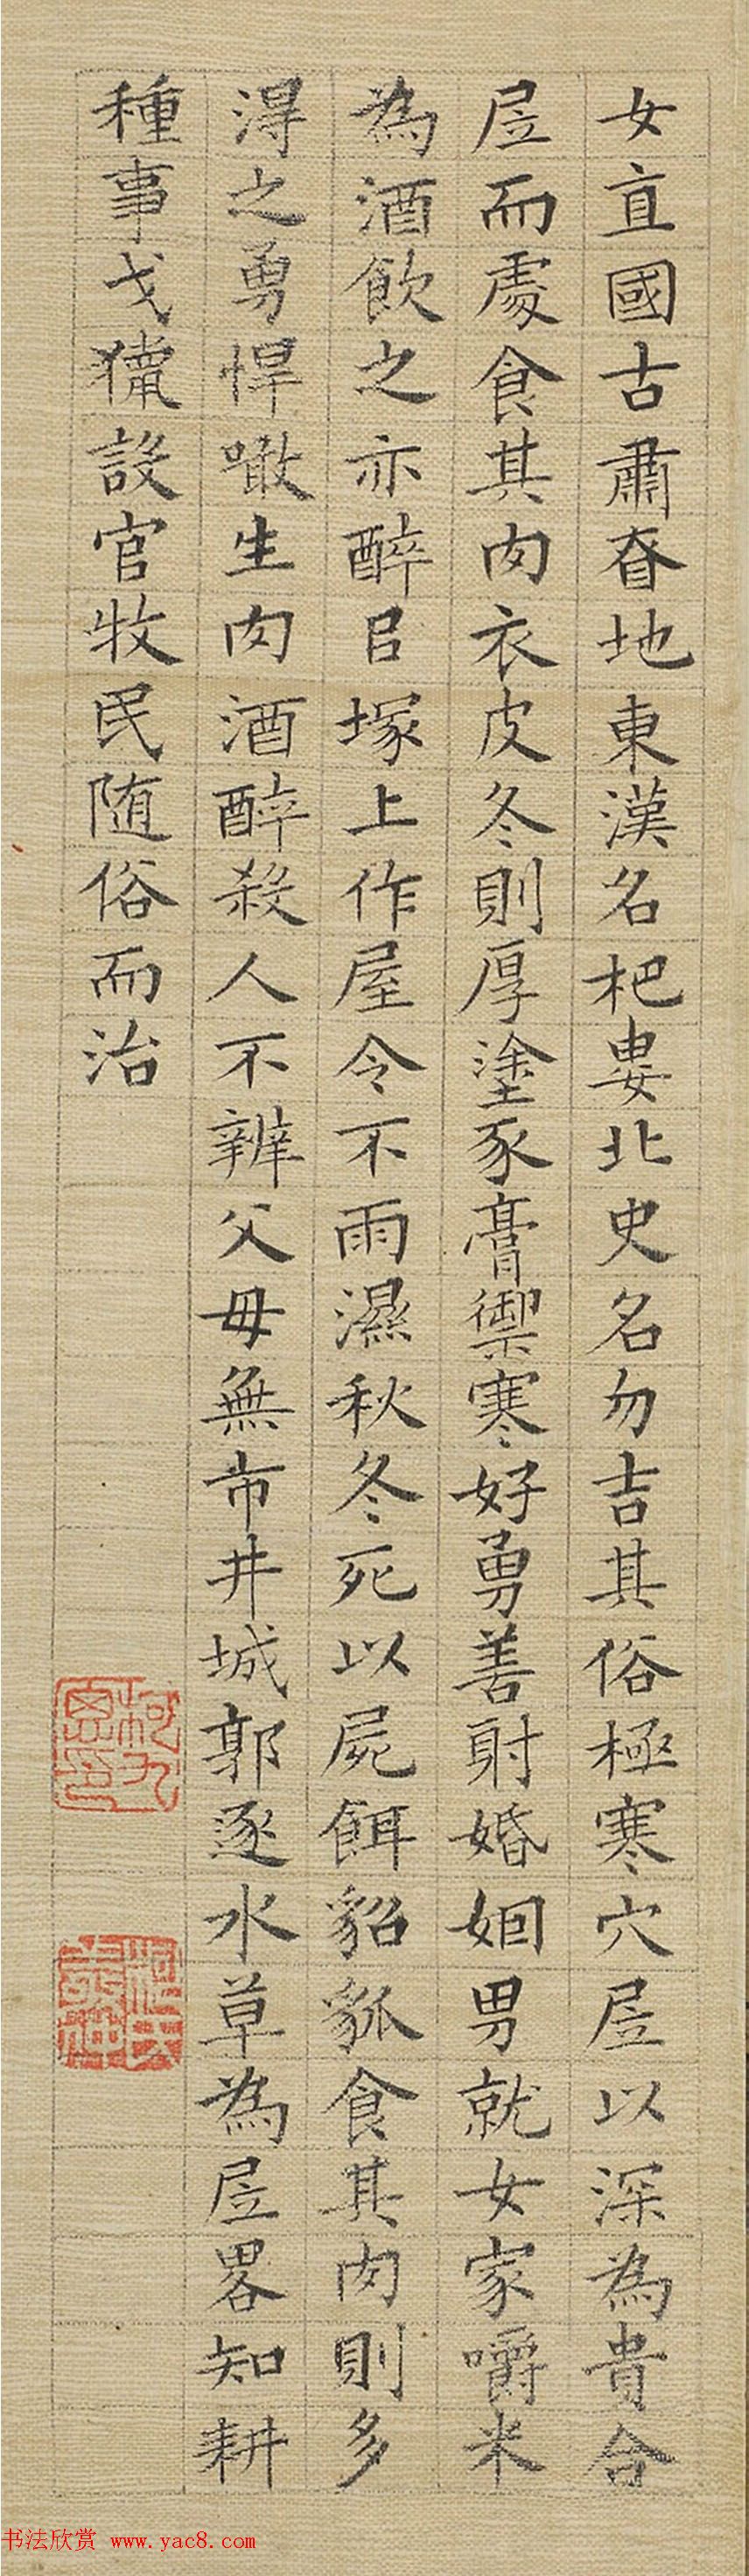 女直國古肅昚地東漢名杷婁北史名勿吉其俗極寒穴居以深為貴合
居而處食其肉衣皮冬則厚塗豕膏禦寒好勇善射婚姻男就女家嚼米
為酒飲之亦醉㠯塚上作屋令不雨濕秋冬死以屍餌貂狐食其肉則多
得之勇悍噉生肉酒醉殺人不辨父母無市井城郭逐水草為居畧知耕
種事弋獵設官牧民随俗而治
柯九思印
柯氏敬仲
书法欣赏 www.yac8.com